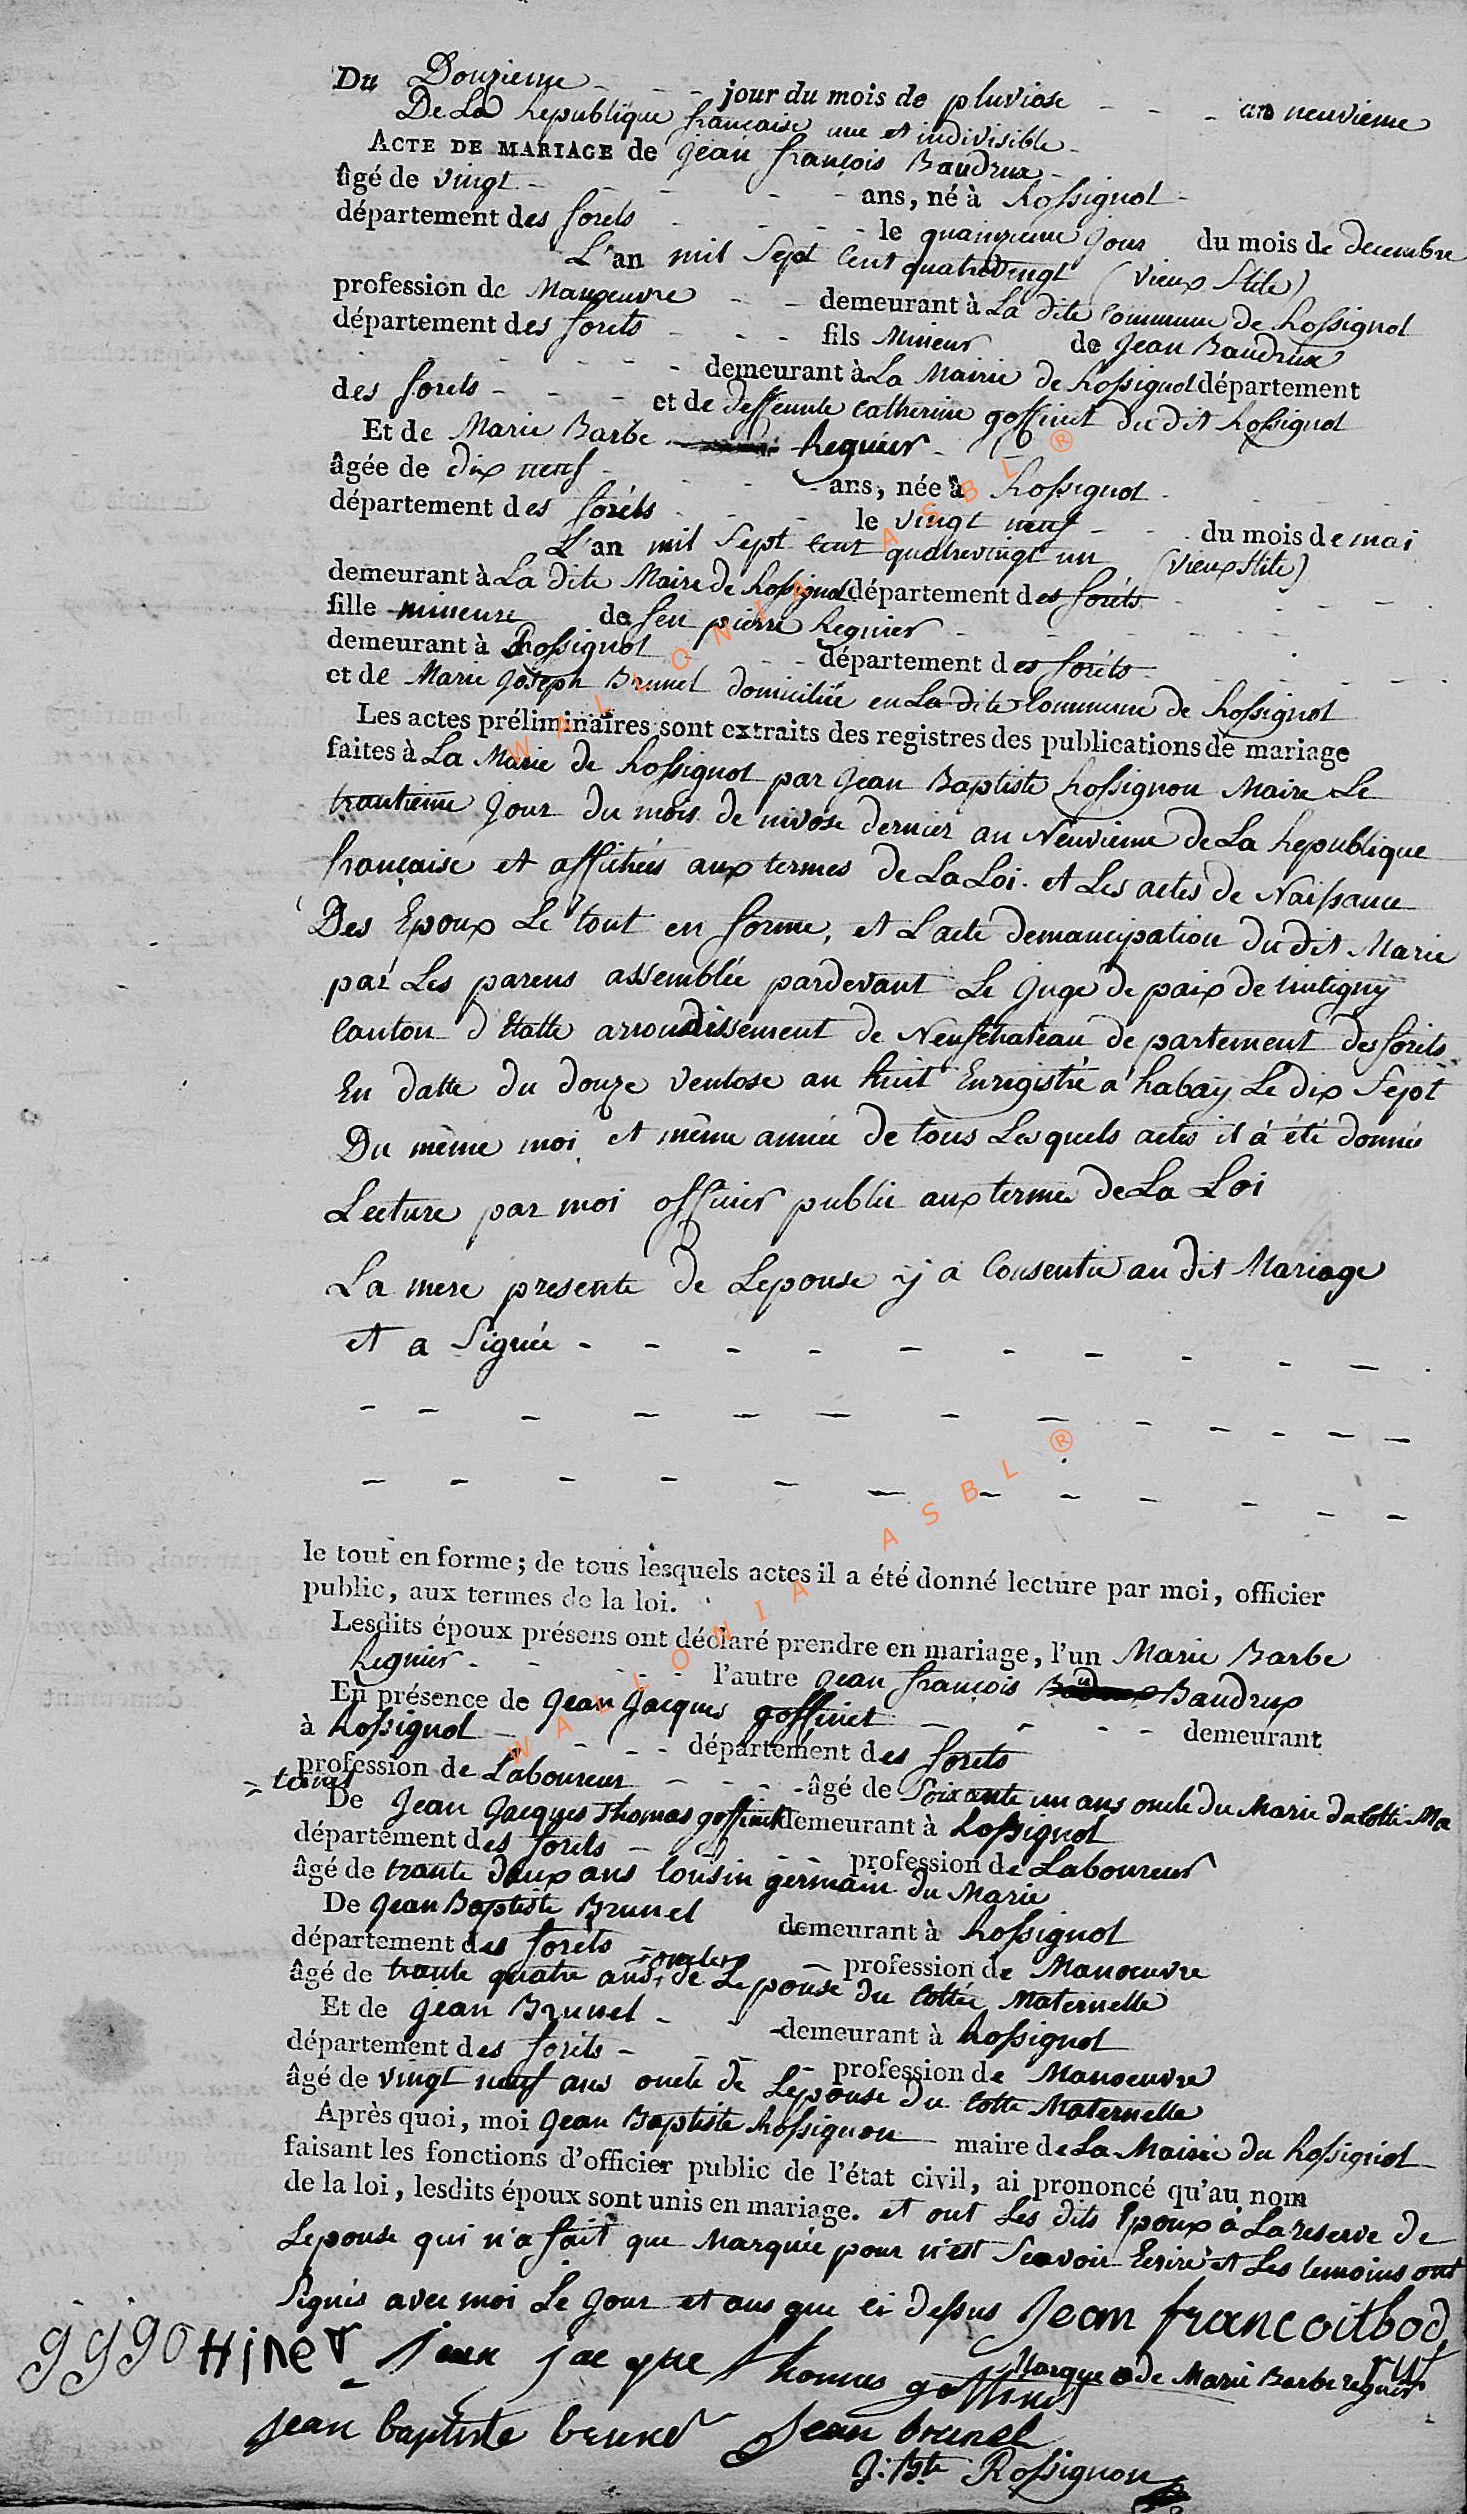 Du Douzieme jour du mois de pluviose an neuvieme
De La Republique francaise une et indivisible
ACTE DE MARIAGE de Jean françois Baudrux
âgé de vingt ans, né à Rossignol
département des forets le quainzieme jour du mois de decembre
L'an mil Sept Cent quatrevingt (vieux Stile)
profession de Manoeuvre demeurant à La dite Commune de Rossignol
département des forets fils Mineur de Jean Baudrux
demeurant à La Mairie de Rossignol département
des forets et de deffeunte Catherine goffinet du dit Rossignol
Et de Marie Barbe Regnier
âgée de dix neuf ans, née à Rossignol
département des foréts le vingt neuf du mois de mai
L'an mil Sept Cent quatrevingt un (vieux Stile)
demeurant à La dite Maire de Rossignol département des foréts
fille mineure de feu pierre Regnier
demeurant à Rossignol département des foréts
et de Marie Joseph Brunel domiciliée en La dite Commune de Rossignol
Les actes préliminaires sont extraits des registres des publications de mariage
faites à La Marie de Rossignol par Jean Baptiste Rossignon Maire Le
trantieme jour du mois de nivose dernier an Neuvieme De La Republique
francaise et affichées aux termes de La Loi. et Les actes de Naissance
Des Epoux Le tout en forme, et L'acte demancipation du dit Marie
par Les parens assemblée pardevant Le Juge de paix de tintigny
Canton d'Etalle arrondissement de Neufchateau departement des foréts
En datte du douze ventose an huit Enregistré a habay Le dix Sept
Du même moi et même année de tous Lesquels actes il a été donnée
Lecture par moi officier public aux termes de La Loi
La mere presente de Lepouse y a Consentie au dit Mariage
et a Signée
le tout en forme; de tous lesquels actes il a été donné lecture par moi, officier
public, aux termes de la loi.
Lesdits époux présens ont déclaré prendre en mariage, l'un Marie Barbe
Regnier l'autre Jean françois Baudrux
En présence de Jean Jacques goffinet demeurant
à Rossignol département des forets
profession de Laboureur âgé de Soixante un ans oncle du Marie du Cotté Ma
= ternel
De Jean Jacques Thomas goffinet demeurant à Rossignol
département des forets profession de Laboureur
âgé de trante deux ans Cousin germain du Marie
De Jean Baptiste Brunel demeurant à Rossignol
département des foréts profession de Manoeuvre
âgé de trante quatre ans, oncle de Lepouse du Cottée Maternelle
Et de Jean Brunel demeurant à Rossignol
département des foréts profession de Manoeuvre
âgé de vingt neuf ans oncle de Lepouse du Cotté Maternelle
Après quoi, moi Jean Baptiste Rossignon maire de La Mairie du Rossignol
faisant les fonctions d'officier public de l'état civil, ai prononcé qu'au nom
de la loi, lesdits époux sont unis en mariage. et ont Les dits Epoux à La reserve de
Lepouse qui n'a fait que Marquée pour n'est Scavoir Ecrire et Les temoins ont
Signés avec moi Le Jour et ans que ci dessus Jean francoitbod
rux
Marque de Marie Barbe regnier
jean jacque thomas goffinet
jean baptiste brunel Jean brunel
J: Bte Rossignon
WALLONIA ASBL ®
WALLONIA ASBL ®